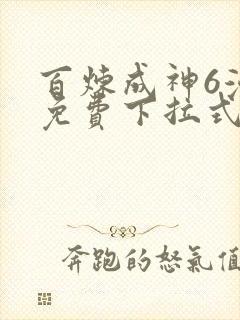 百炼成神6
免費下拉式
奔跑的怒氣值